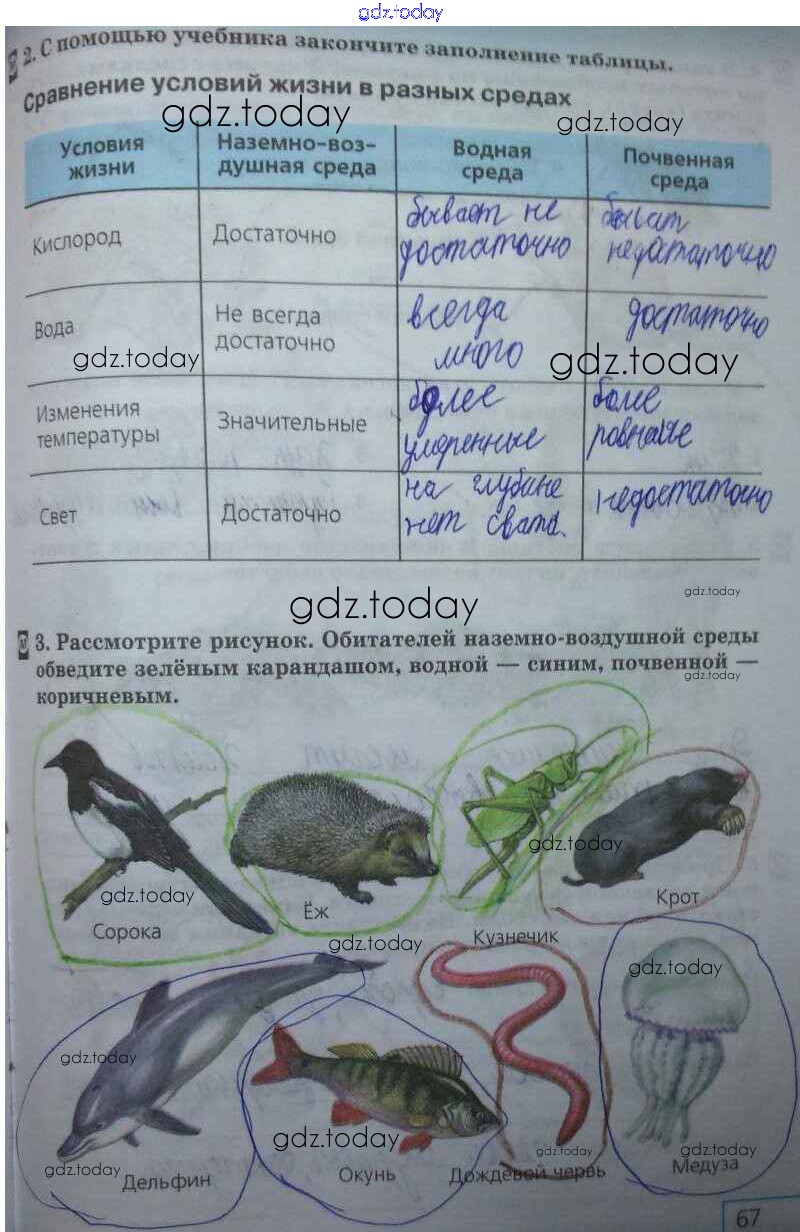 gdz.today
2. С помощью учебника закончите заполнение таблицы.
Сравнение условий жизни в разных средах
gdz.today
gdz.today
Условия
жизни
Наземно-воз-
душная среда
Водная
среда
Почвенная
среда
Кислород
Достаточно
бывает не
достаточно
бывает
недостаточно
Вода
Не всегда
достаточно
всегда
много
достаточно
gdz.today
gdz.today
Изменения
температуры
Значительные
более
умеренные
более
Свет
Достаточно
на глубине
нет света.
недостаточно
gdz.today
gdz.today
3. Рассмотрите рисунок. Обитателей наземно-воздушной среды
обведите зелёным карандашом, водной — синим, почвенной —
коричневым.
gdz.today
gdz.today
gdz.today
Сорока
Ёж
Кузнечик
Крот
gdz.today
gdz.today
gdz.today
gdz.today
gdz.today
gdz.today
gdz.today
Дельфин
Окунь
Дождевой червь
Медуза
67